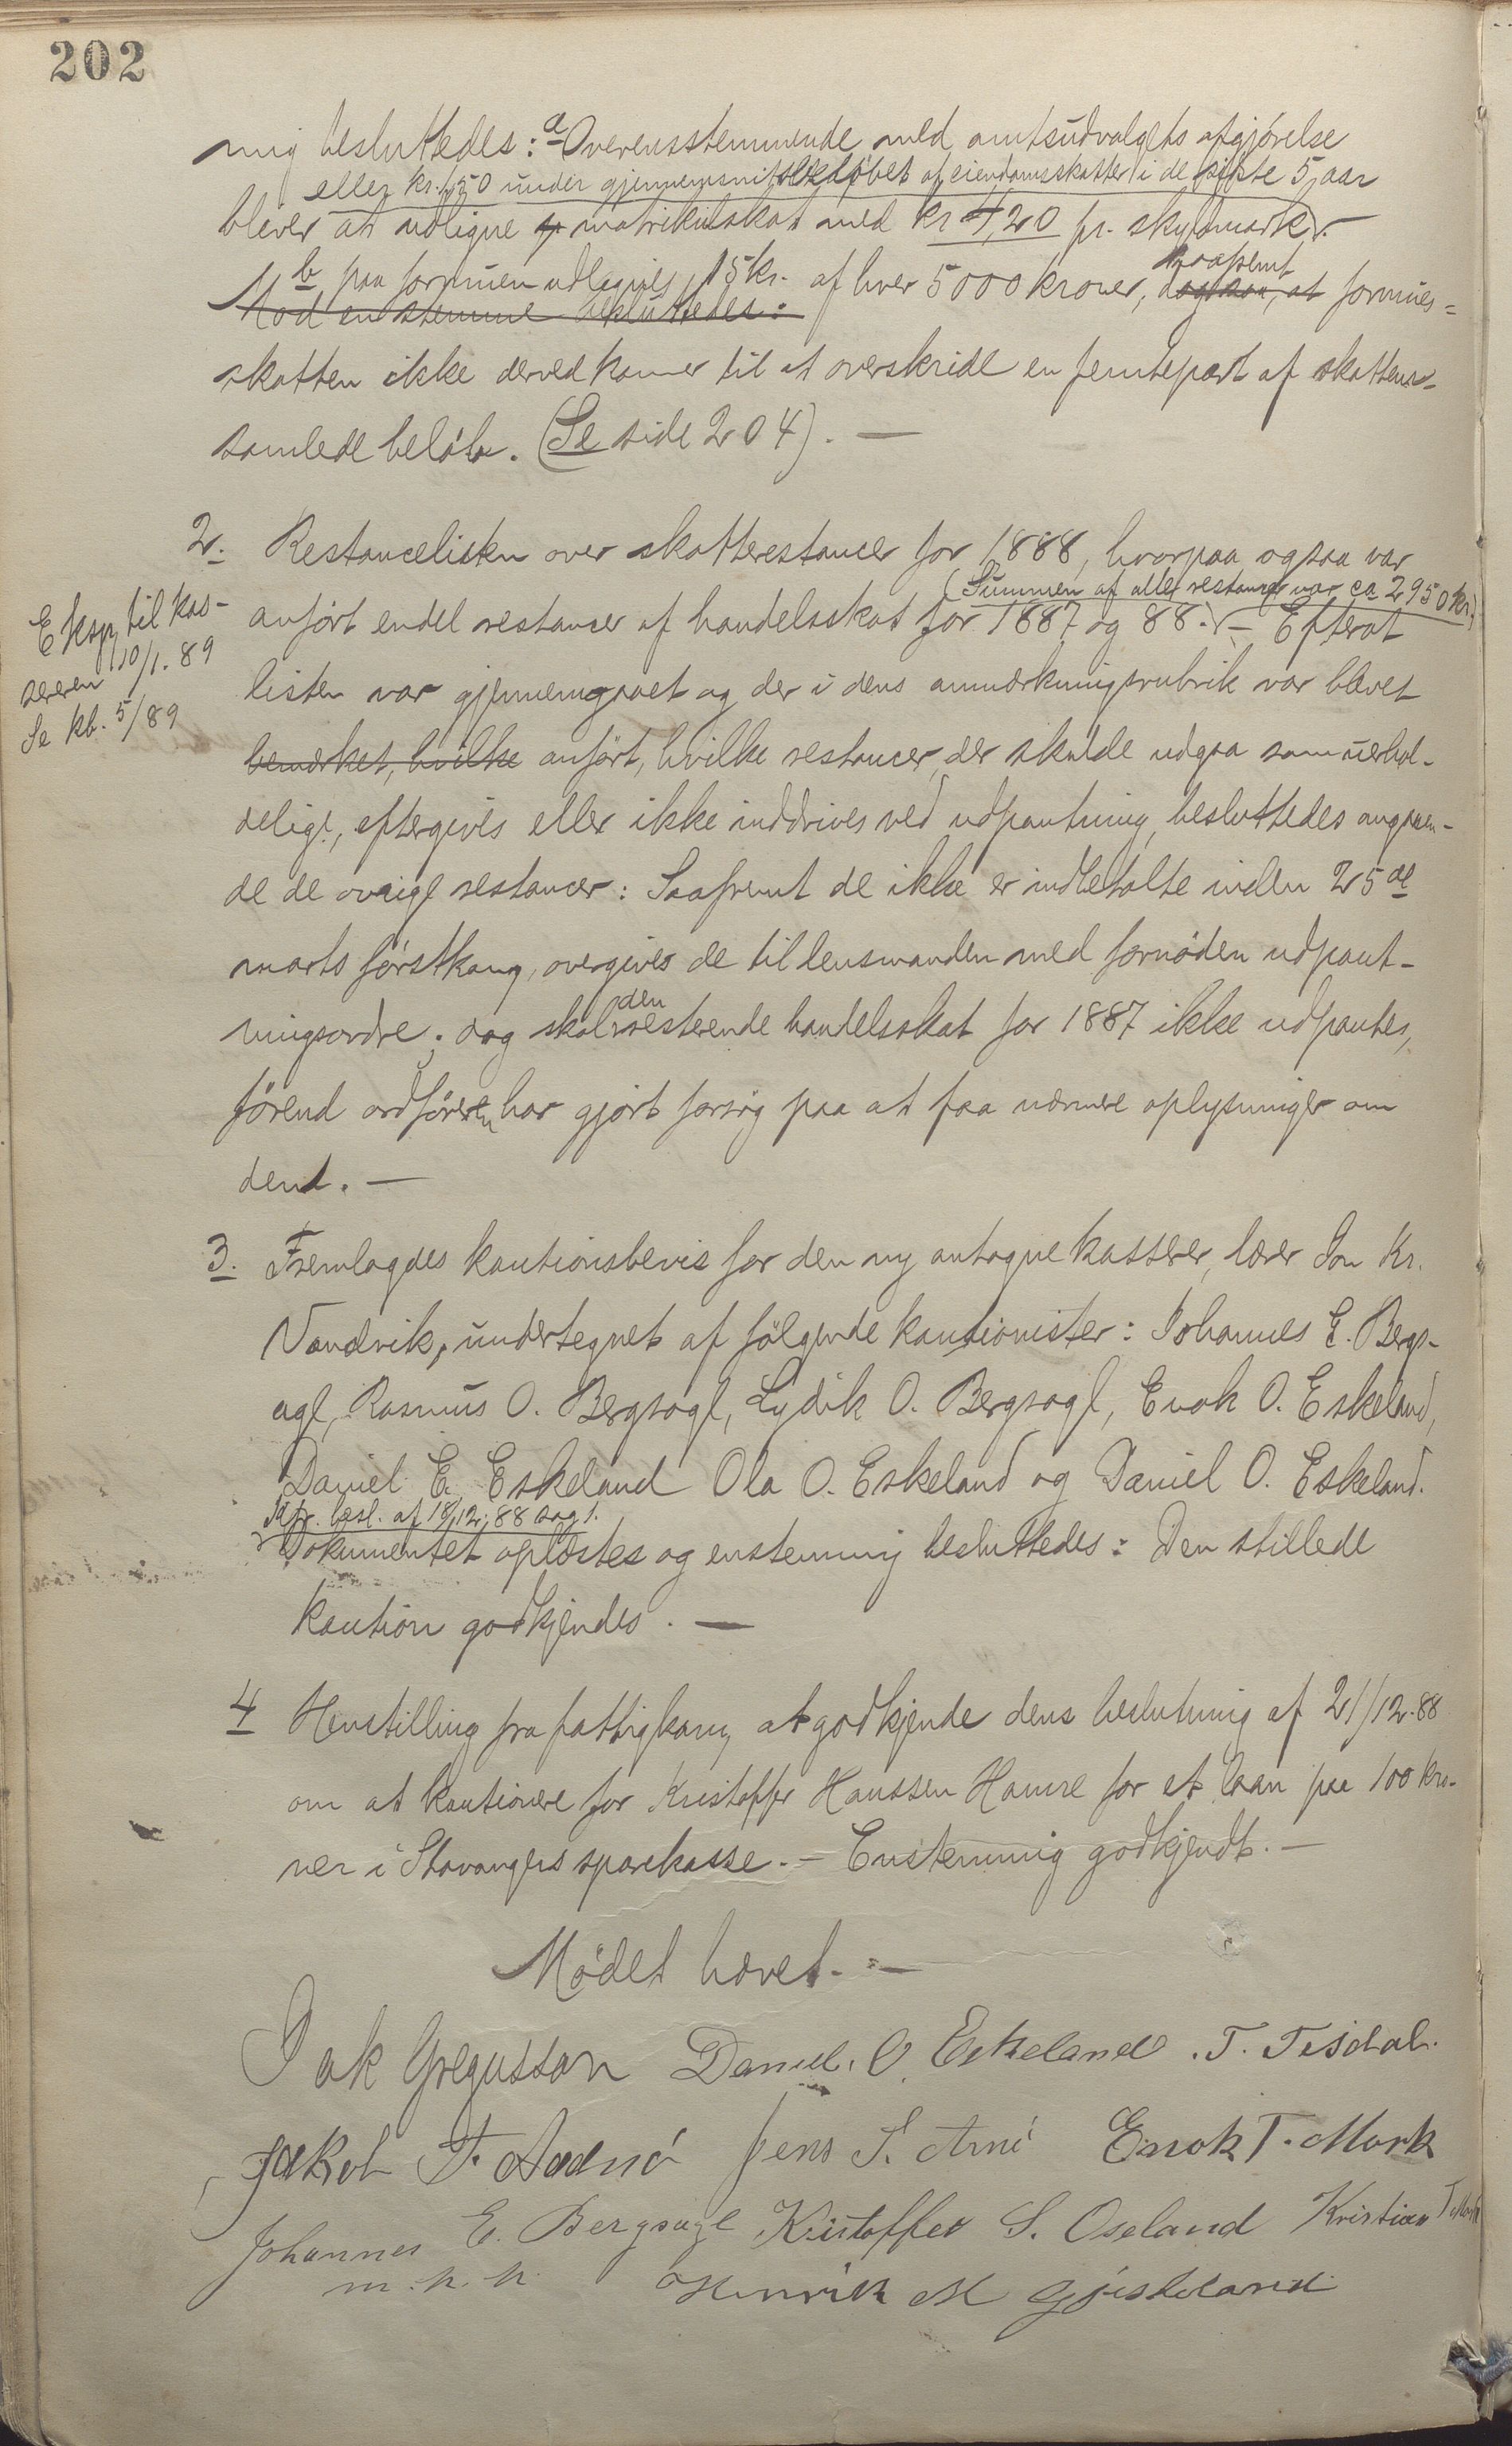 202
mig besluttedes: a Overensstemmende med amtsudvalgets afgjørelse
eller kr. 1,50 under gjennemsnitsbeløbet af eiendomsskatter i de sidste 5 aar
bliver at udligne matrikulskat med kr 4,20 pr. skyldmark.-
b, paa formuen udlignes 15 kr. af hver 5000 kroner, dogsaa, at saafremt formues=
Mod en stemme besluttedes:
skatten ikke derved komer til at overskride en femtepart af skattens
samlede beløb. (Se side 204). —
2. Restancelisten over skatterestancer for 1888, hvorpaa ogsaa var
(Summen af alle restancer var ca 2950 kr.)
anført endel restancer af handelsskat for 1887 og 88. - Efterat
Eksp. til kas-
sereren 10/1. 89
Se kb. 5/89
listen var gjennemgaaet og der i dens anmærkningsrubrik var blevet
bemærket, hvilke anført, hvilke restancer, der skulde udgaa som uerhol-
delige, eftergives eller ikke inddrives ved udpantning, besluttedes angaaen-
de de øvrige restancer: Saafremt de ikke er indbetalte inden 25de
marts førstkomg, overgives de til lensmanden med fornøden udpant-
ningsordre; dog skal den resterende handelsskat for 1887 ikke udpantes,
førend ordføreren har gjort forsøg paa at faa nærmere oplysninger om
dem. —
3. Fremlagdes kautionsbevis for den ny antagne kasserer, lærer Jon Kr.
Vandvik, undertegnet af følgende kautionister: Johannes E. Bergs-
agl, Rasmus O. Bergsagl, Lydik O. Bergsagl, Enok O. Eskeland,
Daniel E. Eskeland Ola O. Eskeland og Daniel O. Eskeland.
Jfr. besl. af 18/12. 88 sag 1.
Dokumentet oplæstes og enstemmig besluttedes: Den stillede
kaution godkjendes. —
4 Henstilling fra fattigkom, at godkjende dens beslutning af 21/12. 88
om at kautionere for Kristoffer Hanssen Hamre for et laan paa 100 kro-
ner i Stavangers sparekasse. - Enstemmig godkjendt. -
Mødet hævet. —
Jak Gregussøn Daniel. O. Eskeland . T. Tisdal.
Jakob T. Aadnø Jens S. Arnø Enok T. Mork
Johannes E. Bergsagl Kristoffer S. Oseland Kristian T Mork
m. p. p. Henrik M Gjeskeland